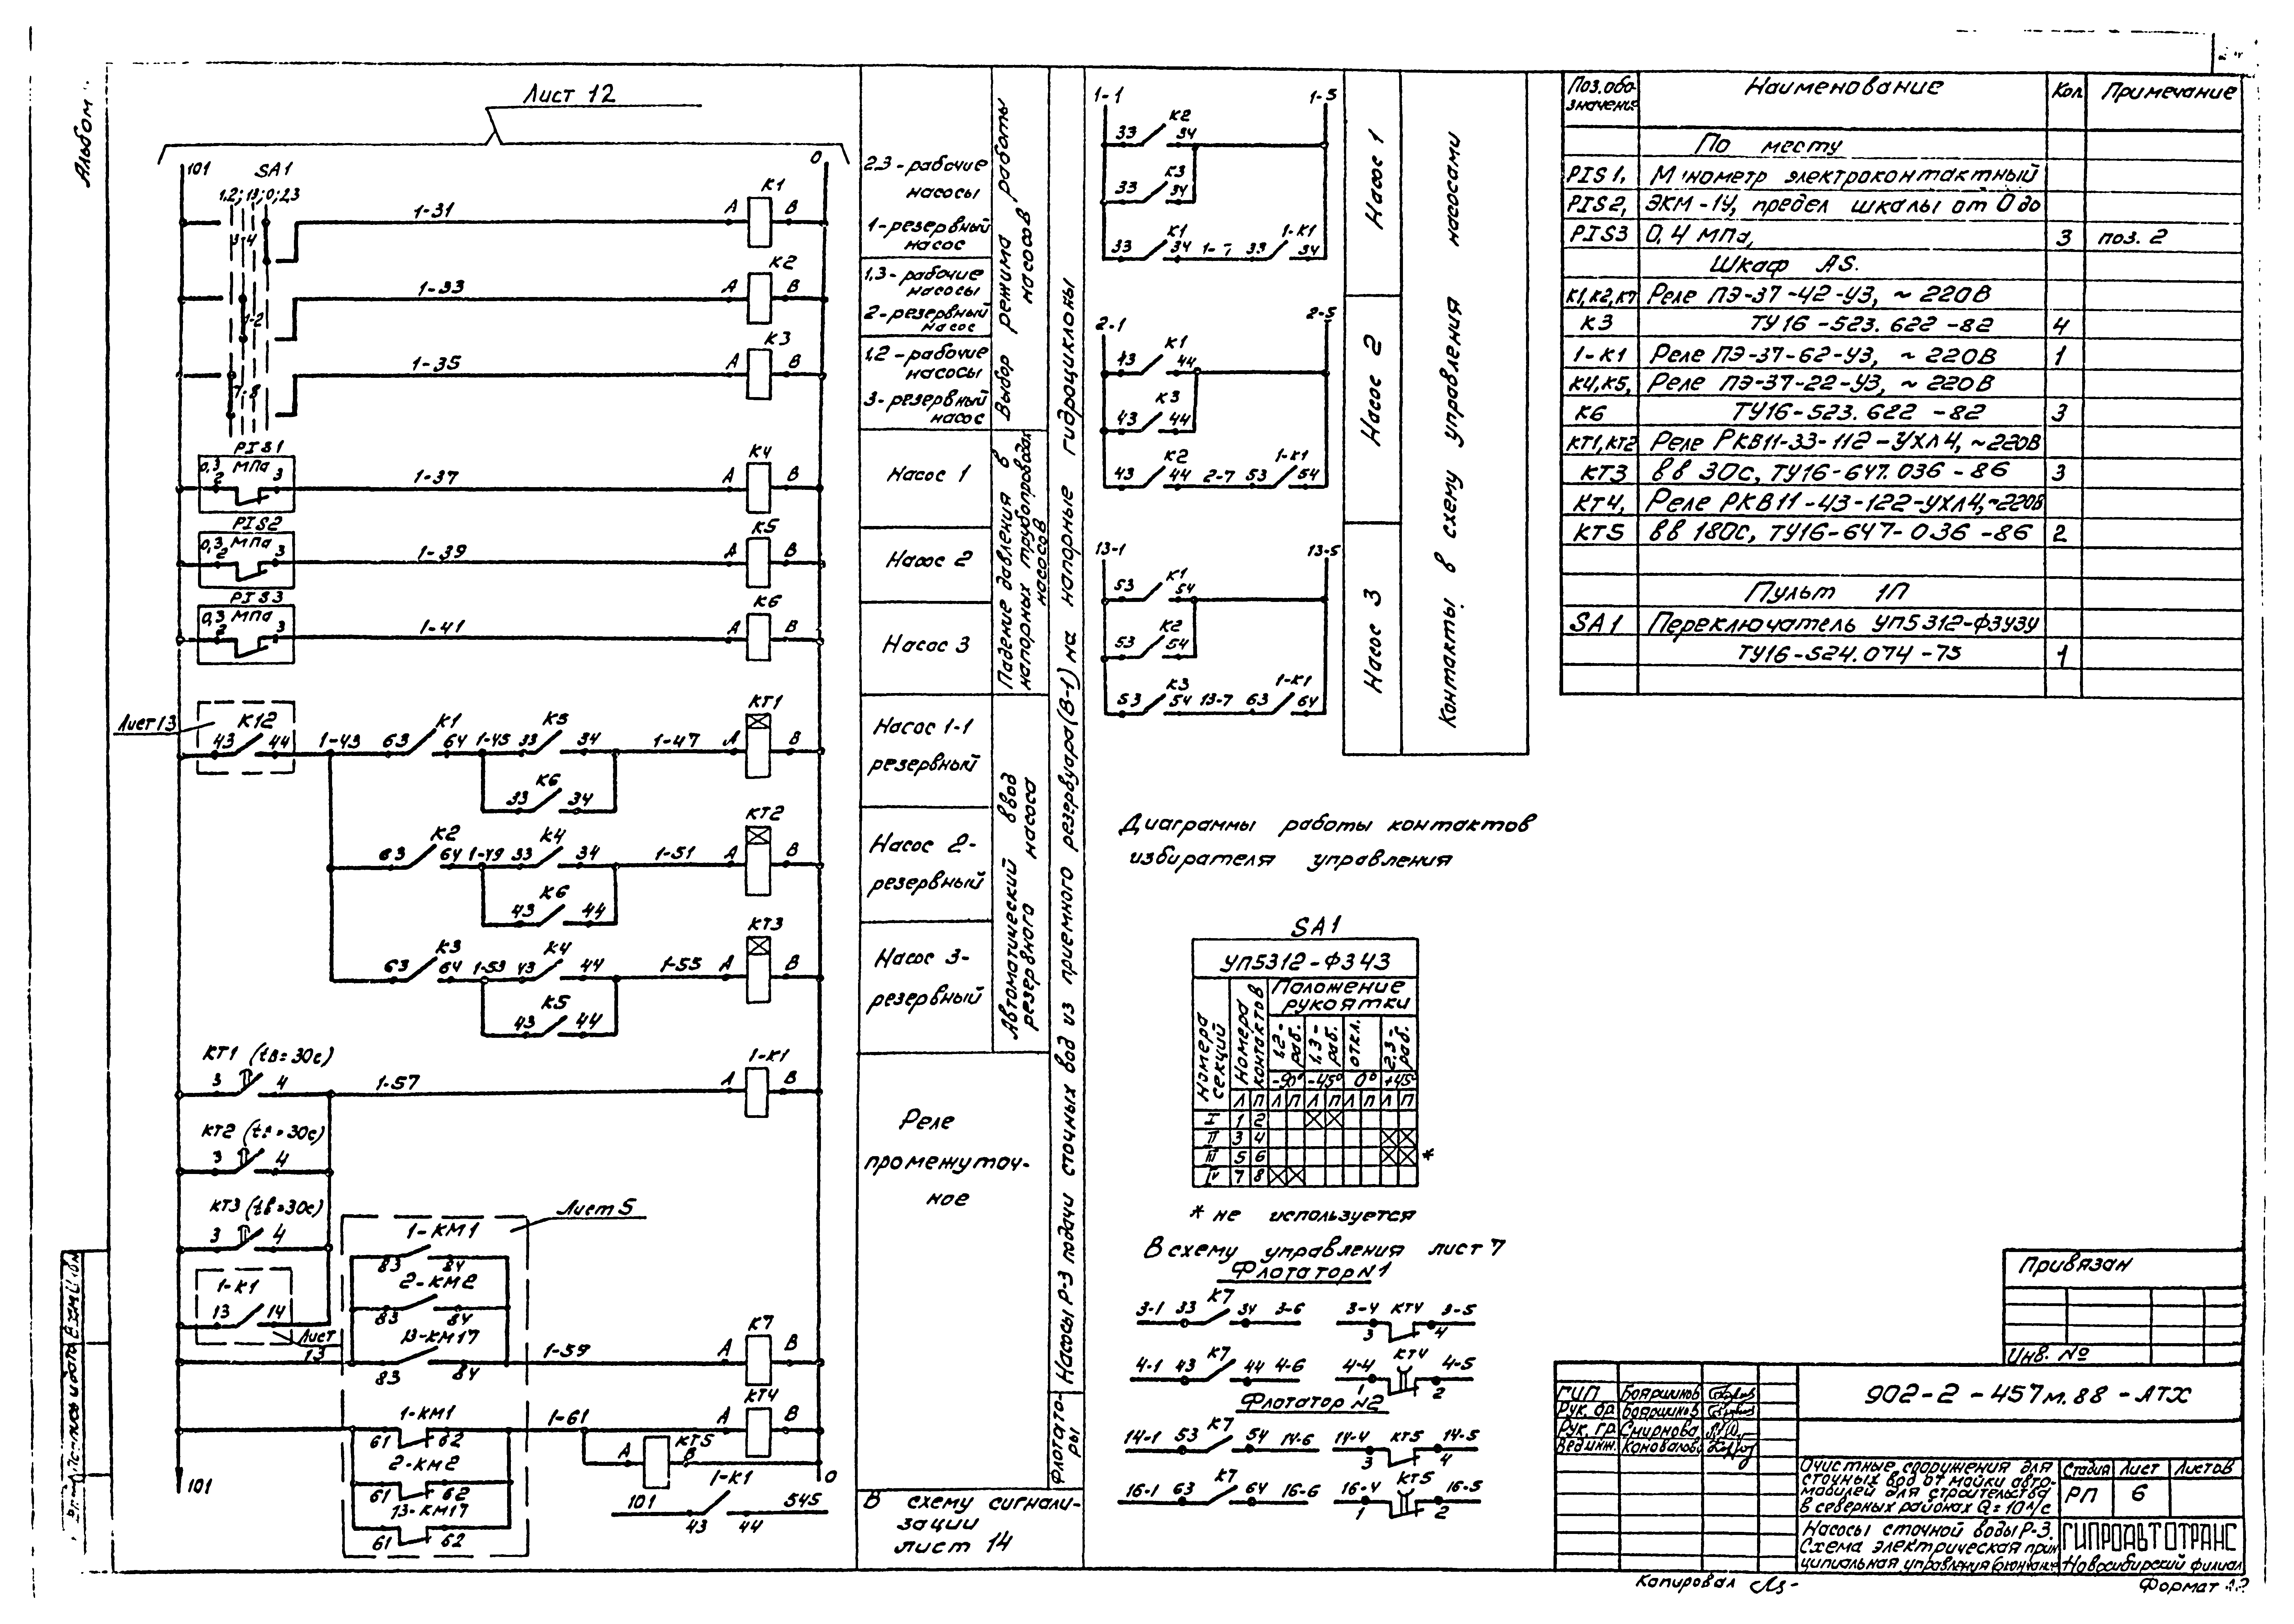 Альбом
Лист 12
101
SA1
0
1,2; 1,3; 0; 2,3
3-4
1-2
7-8
1-31
A
K1
B
1-33
A
K2
B
1-35
A
K3
B
PIS1
0,3 МПа
2
3
1-37
A
K4
B
PIS2
0,3 МПа
2
3
1-39
A
K5
B
PIS3
0,3 МПа
2
3
1-41
A
K6
B
Лист 13
K12
43
44
1-43
63
K1
64
1-45
33
K5
34
1-47
A
KT1
B
33
K6
34
63
K2
64
1-49
33
K4
34
1-51
A
KT2
B
43
K6
44
63
K3
64
1-53
43
K4
44
1-55
A
KT3
B
43
K5
44
KT1 (tв=30с)
3
4
1-57
A
1-K1
B
KT2 (tв=30с)
3
4
KT3 (tв=30с)
3
4
1-K1
13
14
Лист 13
Лист 5
1-KM1
83
84
2-KM2
83
84
13-KM17
83
84
1-59
A
K7
B
1-KM1
61
62
1-61
A
KT4
B
2-KM2
61
62
A
KT5
B
13-KM17
61
62
101
1-K1
43
44
545
101
0
2,3-рабочие
насосы
1-резервный
насос
1,3-рабочие
насосы
2-резервный
насос
1,2-рабочие
насосы
3-резервный
насос
Выбор режима работы
насосов
Насос 1
Насос 2
Насос 3
Падение давления в
напорных трубопроводах
насосов
Насос 1-1
резервный
Насос 2-
резервный
Насос 3-
резервный
Автоматический ввод
резервного насоса
Реле
промежуточ-
ное
В схему сигнали-
зации
лист 14
Насосы Р-3 подачи сточных вод из приемного резервуара (В-1) на напорные гидроциклоны
Флотато-
ры
1-1
1-5
33
K2
34
33
K3
34
33
K1
34
1-7
33
1-K1
34
Насос 1
2-1
2-5
43
K1
44
43
K3
44
43
K2
44
2-7
53
1-K1
54
Насос 2
13-1
13-5
53
K1
54
53
K2
54
53
K3
54
13-7
63
1-K1
64
Насос 3
Контакты в схему управления насосами
Диаграммы работы контактов
избирателя управления
SA1
УП5312-Ф343
Номера
секций
Номера
контактов
Положение
рукоятки
1,2-
раб.
1,3-
раб.
откл.
2,3-
раб.
-90°
-45°
0°
+45°
Л П Л П Л П Л П Л П
I 1 2
II 3 4
III 5 6 *
IV 7 8
* не используется
В схему управления лист 7
Флотатор N1
3-1 33 K7 34 3-6
3-4 KT4 3-5
3 4
4-1 43 K7 44 4-6
4-4 KT4 4-5
1 2
Флотатор N2
14-1 53 K7 54 14-6
14-4 KT5 14-5
3 4
16-1 63 K7 64 16-6
16-4 KT5 16-5
1 2
Поз. обо-
значение
Наименование
Кол
Примечание
По месту
PIS1, Манометр электроконтактный
PIS2, ЭКМ-1У, предел шкалы от 0 до
PIS3 0,4 МПа, 3 поз. 2
Шкаф AS.
K1, K2, K7 Реле ПЭ-37-42-У3, ~220В
K3 ТУ16-523.622-82 4
1-K1 Реле ПЭ-37-62-У3, ~220В 1
K4, K5, Реле ПЭ-37-22-У3, ~220В
K6 ТУ16-523.622-82 3
KT1, KT2 Реле РКВ11-33-112-УХЛ4, ~220В
KT3 вв 30с, ТУ16-647.036-86 3
KT4, Реле РКВ11-43-122-УХЛ4, ~220В
KT5 вв 180с, ТУ16-647-036-86 2
Пульт 1П
SA1 Переключатель УП5312-Ф3У3У
ТУ16-524.074-75 1
Привязан
Инв. №
902-2-457м.88-АТХ
ГИП Бояршинов
Рук. бр. Бояршинов
Рук. гр. Смирнова
Вед. инж. Коновалов
Очистные сооружения для
сточных вод от мойки авто-
мобилей для строительства
в северных районах Q=10 л/с
Стадия Лист Листов
РП 6
Насосы сточной воды Р-3.
Схема электрическая прин-
ципиальная управления (окончание)
ГИПРОАВТОТРАНС
Новосибирский филиал
Копировал
Формат А2